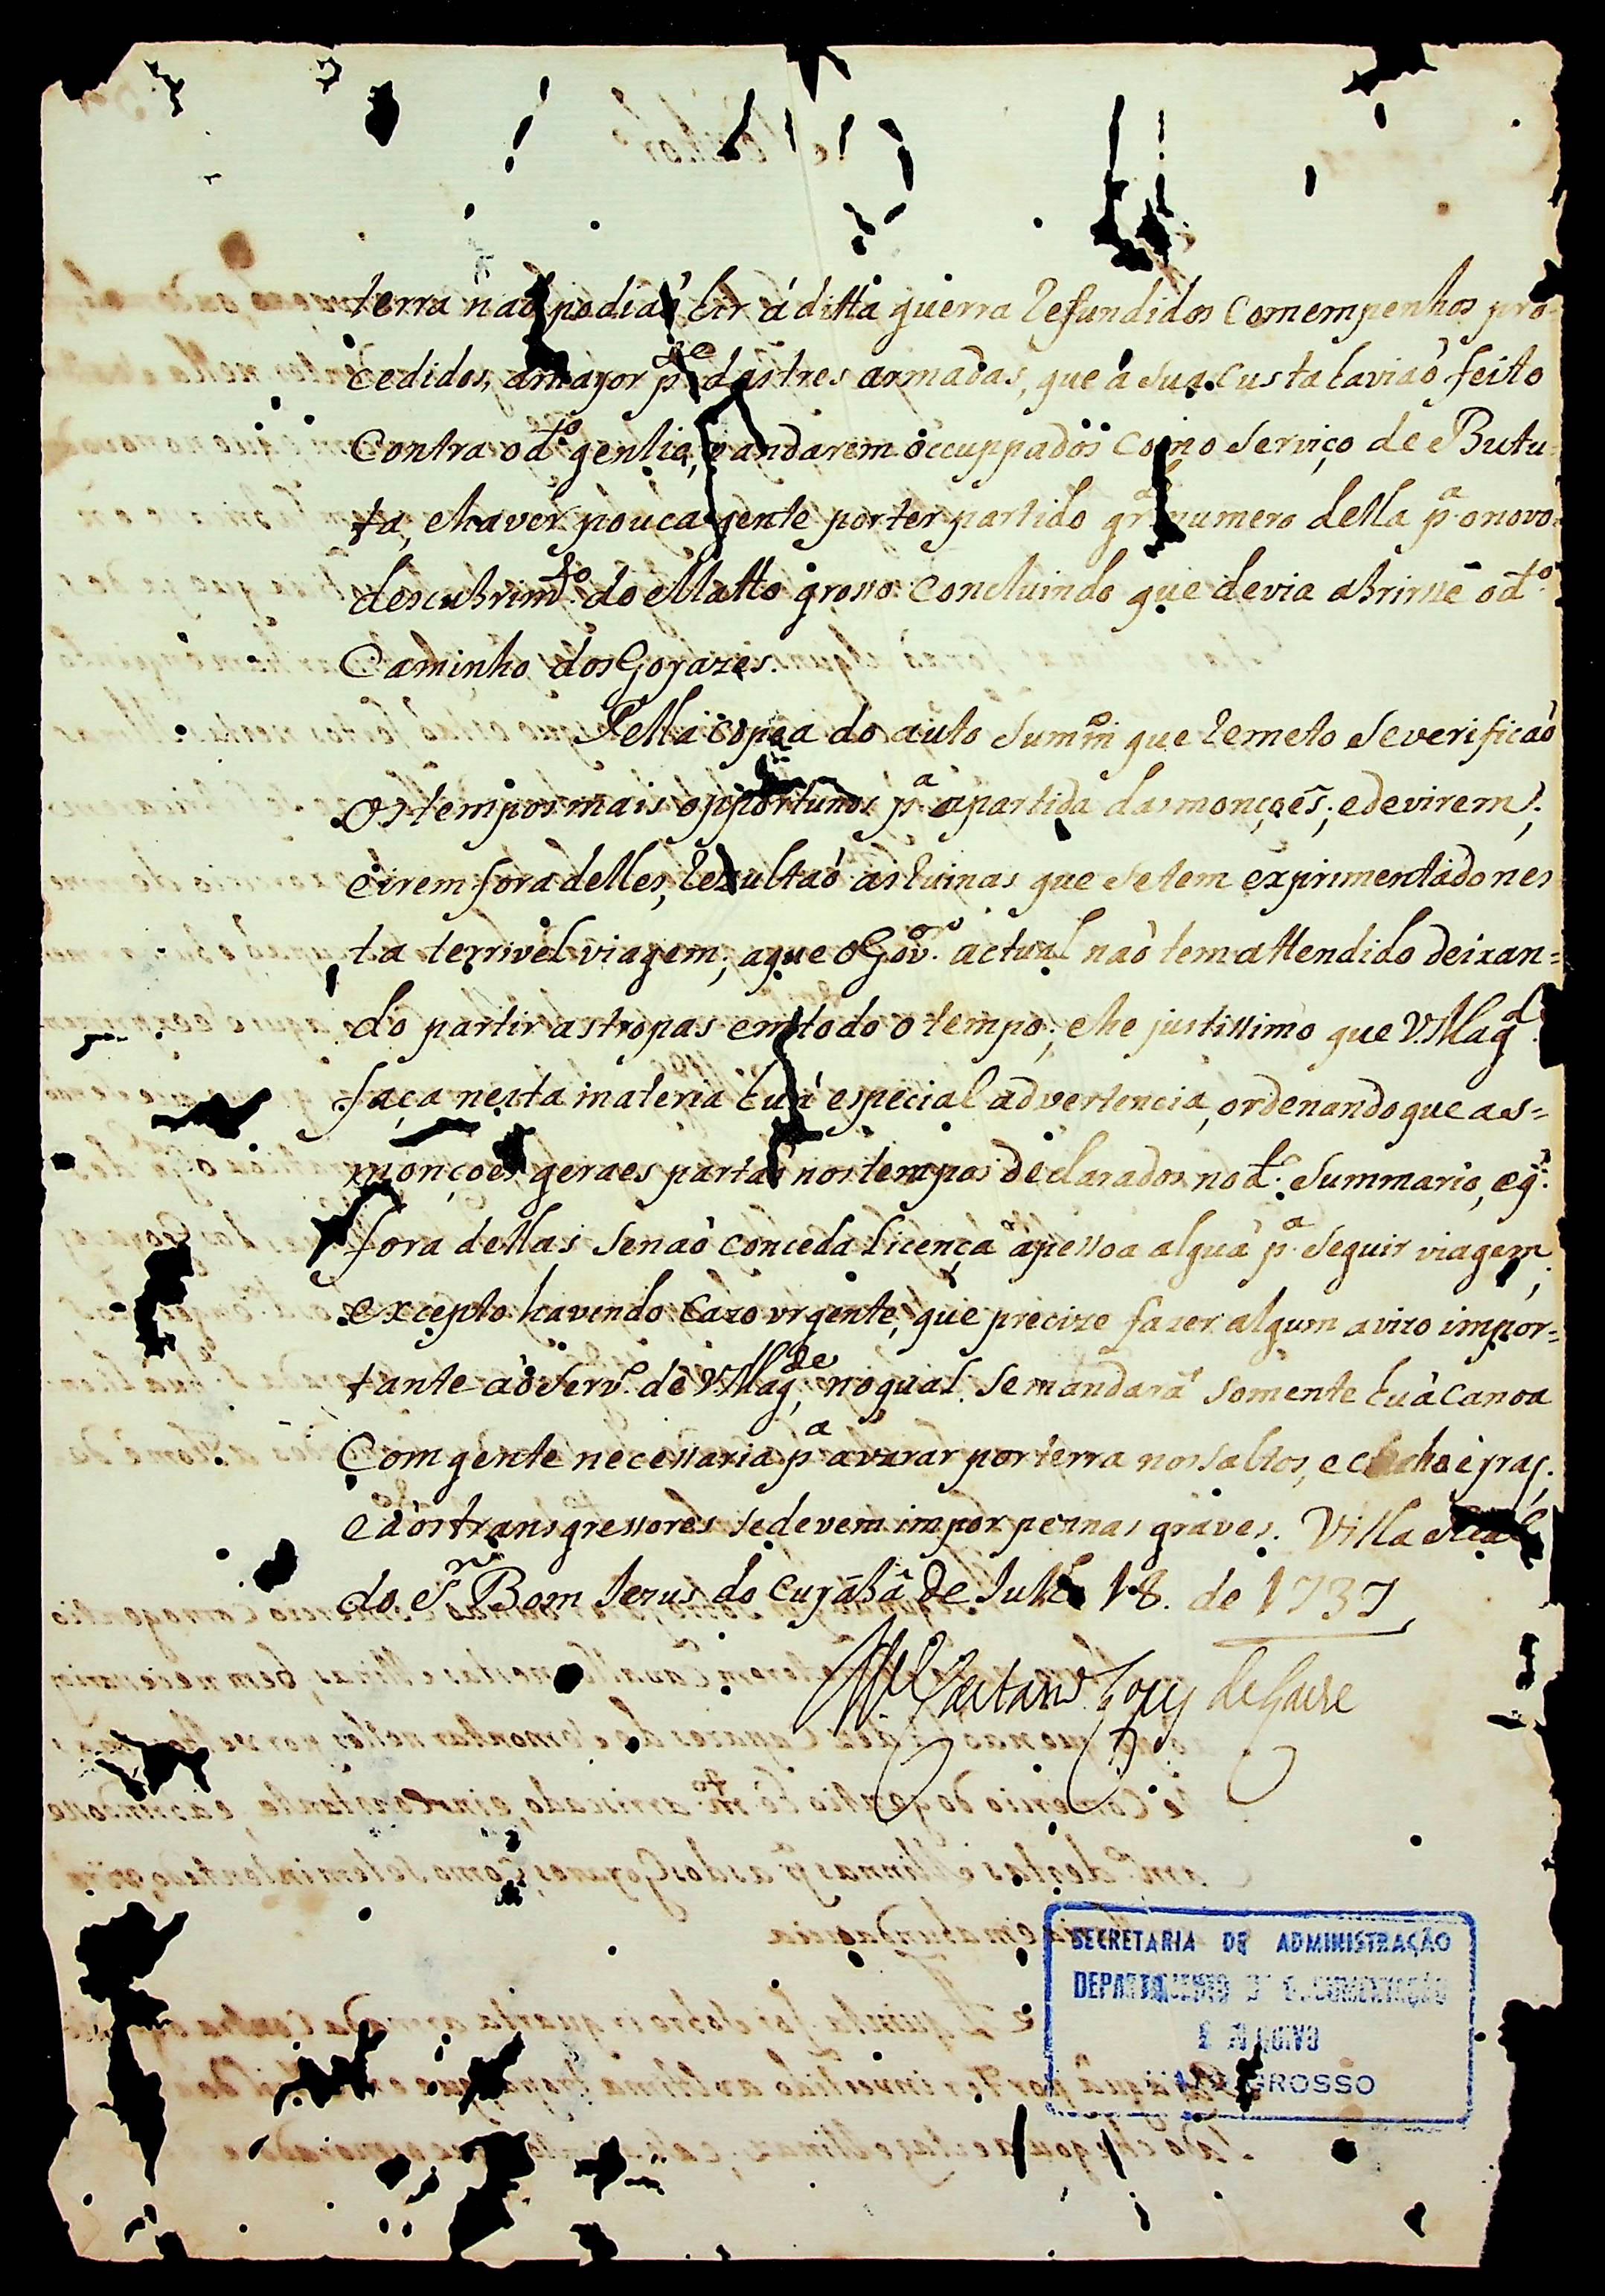 terra naõ podiaõ hir á ditta guerra refundidos com empenhos pro-
cedidos, a mayor p.te das tres armadas, que á sua custa haviaõ feito
Contra o d.º gentio, e andarem occuppados como serviço de Butu-
ta, e haver pouca gente por ter partido gr.e numero della p.a o novo-
descubrim.to do Matto grosso: Concluindo que devia abrirsse o d.º
Caminho dos Goyazes.
Pella copea do auto summr.º que remeto se verificaõ
os tempos mais opportunos p.a a partida das monçoẽs; e de virem;
e irem fora delles, rezultaõ as ruinas que se tem exprimentado nes
ta terrivel viagem; a que o Gov.or actual naõ tem attendido deixan=
do partir as tropas em todo o tempo; e he justissimo que V. Mag.de
faça nesta materia huã especial advertencia, ordenando que as=
monçoes geraes partaõ nos tempos declarados no d.º Summario, e q.
fora dellas se naõ conceda licença a pessoa alguã p.a seguir viagem,
excepto havendo cazo urgente, que precize fazer algum avizo impor=
tante ao serv.º de V. Mag.de, no qual se mandará somente huã canoa
Com gente necessaria p.a a varar por terra nos saltos, e cachoeyras;
e aos transgressores se devem impor pennas graves. Villa Real
do S.r Bom Jezus do Cuyabá de Julho 18. de 1737
M.el Caetano Lopes de Lavre
SECRETARIA DE ADMINISTRAÇÃO
DEPARTAMENTO DE DOCUMENTAÇÃO
E ARQUIVO
GROSSO